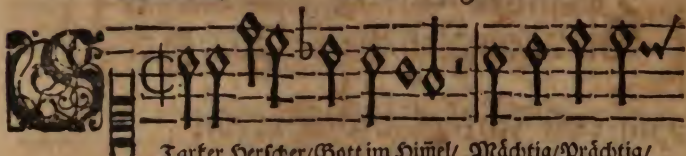 STarker Herscher/Gott im Him̃el/ Mächtig/Prächtig/